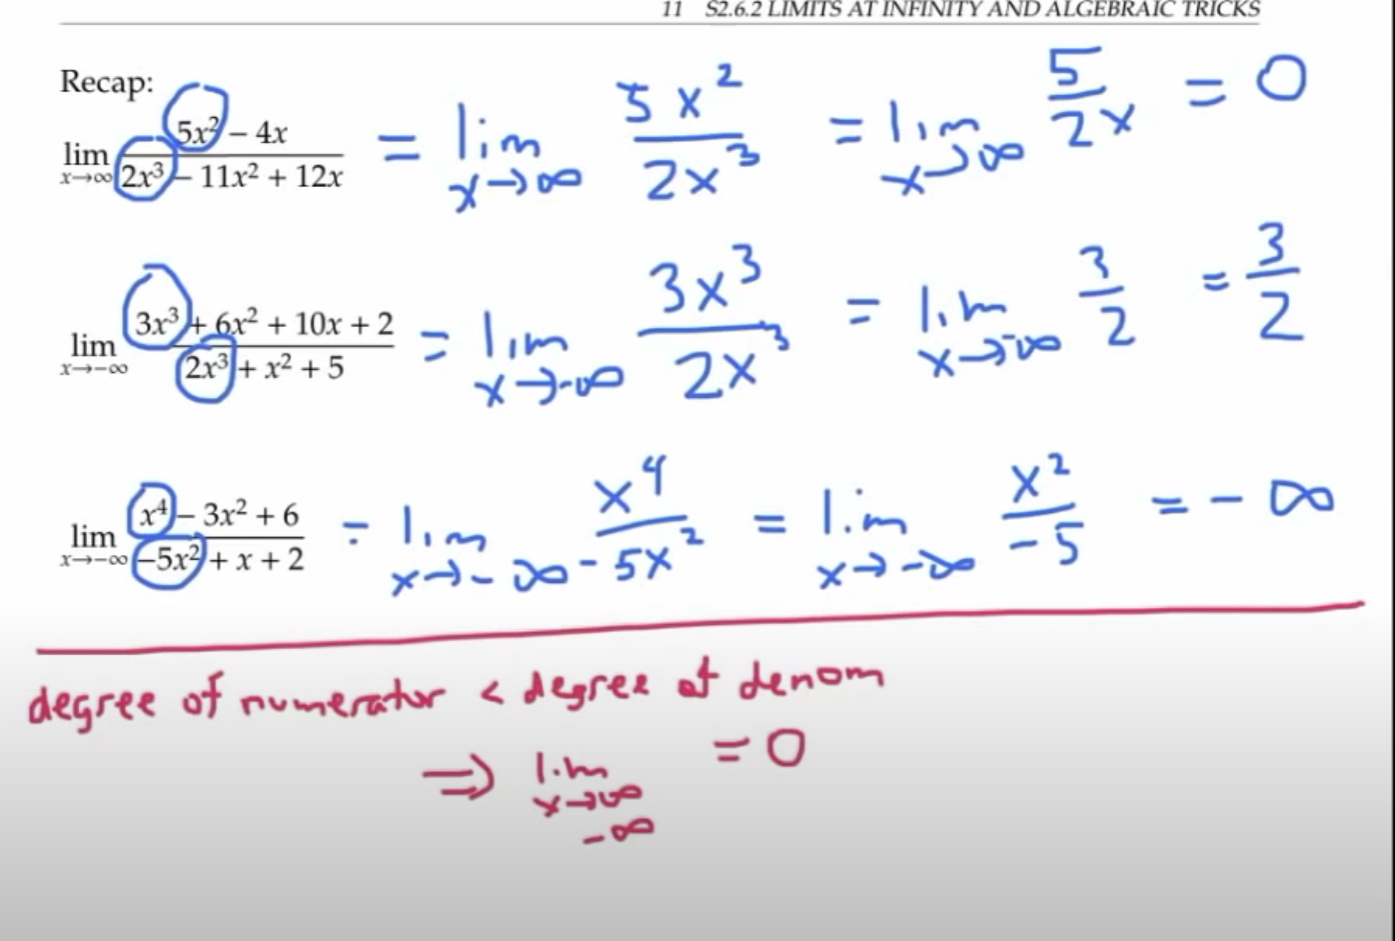 11 S2.6.2 LIMITS AT INFINITY AND ALGEBRAIC TRICKS
Recap:
lim x→∞ (5x² – 4x)/(2x³ – 11x² + 12x) = lim x→∞ 5x²/2x³ = lim x→∞ 5/2x = 0
lim x→-∞ (3x³ + 6x² + 10x + 2)/(2x³ + x² + 5) = lim x→-∞ 3x³/2x³ = lim x→-∞ 3/2 = 3/2
lim x→-∞ (x⁴ – 3x² + 6)/(–5x² + x + 2) = lim x→-∞ x⁴/-5x² = lim x→-∞ x²/-5 = -∞
degree of numerator < degree of denom
⇒ lim x→∞ = 0
-∞